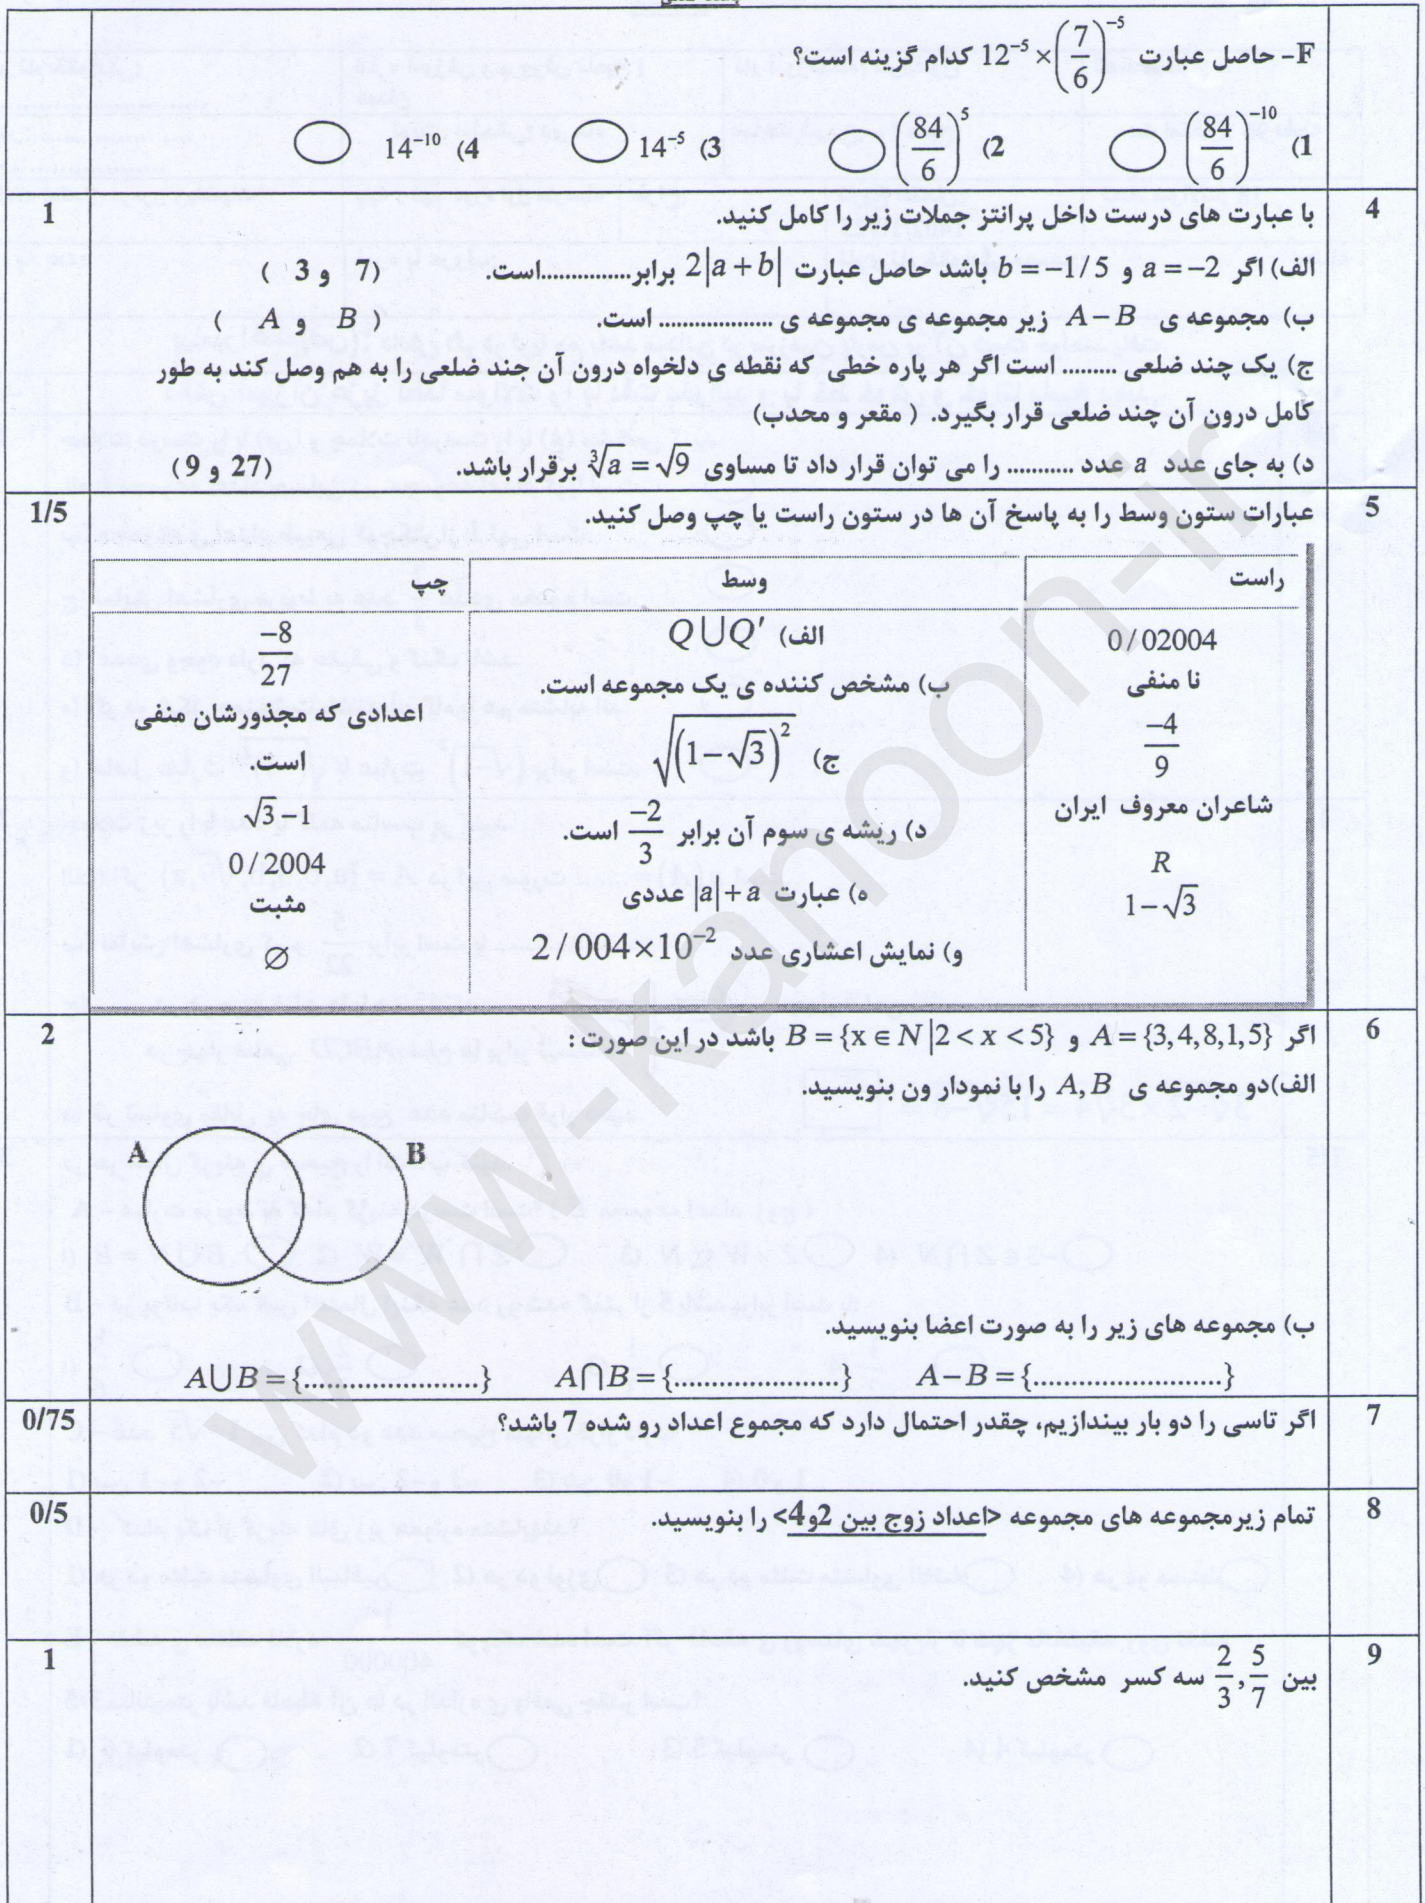 F- حاصل عبارت 12⁻⁵ × (7/6)⁻⁵ کدام گزینه است؟
1) (84/6)⁻¹⁰ 2) (84/6)⁵ 3) 14⁻⁵ 4) 14⁻¹⁰
4 با عبارت های درست داخل پرانتز جملات زیر را کامل کنید. 1
الف) اگر a = −2 و b = −1/5 باشد حاصل عبارت 2|a+b| برابر...............است. (7 و 3)
ب) مجموعه ی A − B زیر مجموعه ی مجموعه ی .................. است. (B و A)
ج) یک چند ضلعی ......... است اگر هر پاره خطی که نقطه ی دلخواه درون آن چند ضلعی را به هم وصل کند به طور
کامل درون آن چند ضلعی قرار بگیرد. (مقعر و محدب)
د) به جای عدد a عدد ........... را می توان قرار داد تا مساوی ∛a = √9 برقرار باشد. (27 و 9)
5 عبارات ستون وسط را به پاسخ آن ها در ستون راست یا چپ وصل کنید. 1/5
راست
0/02004
نا منفی
−4/9
شاعران معروف ایران
R
1−√3
وسط
الف) Q∪Q′
ب) مشخص کننده ی یک مجموعه است.
ج) √((1−√3)²)
د) ریشه ی سوم آن برابر −2/3 است.
ه) عبارت |a|+a عددی
و) نمایش اعشاری عدد 2/004×10⁻²
چپ
−8/27
اعدادی که مجذورشان منفی
است.
√3−1
0/2004
مثبت
∅
6 اگر A={3,4,8,1,5} و B={x∈N|2<x<5} باشد در این صورت : 2
الف)دو مجموعه ی A,B را با نمودار ون بنویسید.
A B
ب) مجموعه های زیر را به صورت اعضا بنویسید.
A∪B={....................} A∩B={....................} A−B={........................}
7 اگر تاسی را دو بار بیندازیم، چقدر احتمال دارد که مجموع اعداد رو شده 7 باشد؟ 0/75
8 تمام زیرمجموعه های مجموعه <اعداد زوج بین 2و4> را بنویسید. 0/5
9 بین 2/3 , 5/7 سه کسر مشخص کنید. 1
www-kanoon-ir